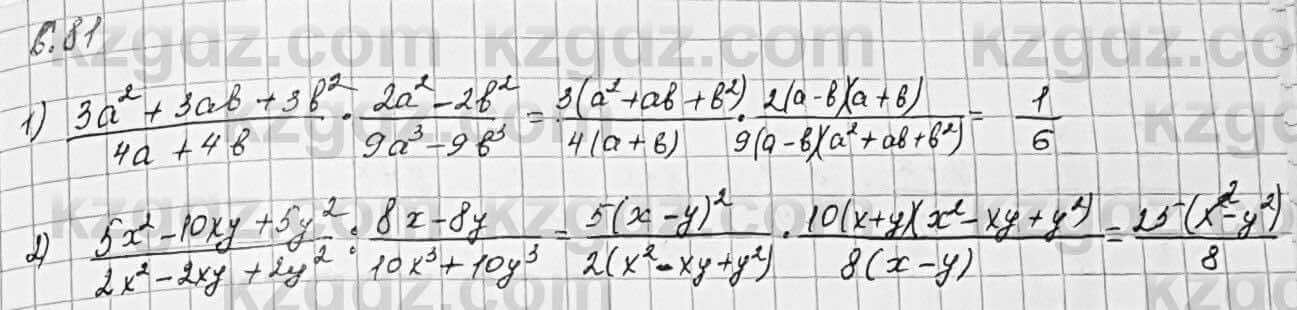 6.81
1) (3a² + 3ab + 3b²)/(4a + 4b) · (2a² - 2b²)/(9a³ - 9b³) = 3(a² + ab + b²)/4(a + b) · 2(a - b)(a + b)/9(a - b)(a² + ab + b²) = 1/6
2) (5x² - 10xy + 5y²)/(2x² - 2xy + 2y²) : (8x - 8y)/(10x³ + 10y³) = 5(x - y)²/2(x² - xy + y²) · 10(x + y)(x² - xy + y²)/8(x - y) = 25(x² - y²)/8
kzgdz.com kzgdz.com kzgdz.com